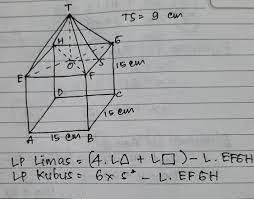 T
TS = 9 cm
H
G
15 cm
O
S
E
F
D
C
15 cm
A
15 cm
B
LP Limas = (4. L△ + L□) - L. EFGH
LP Kubus = 6 x s² - L. EFGH